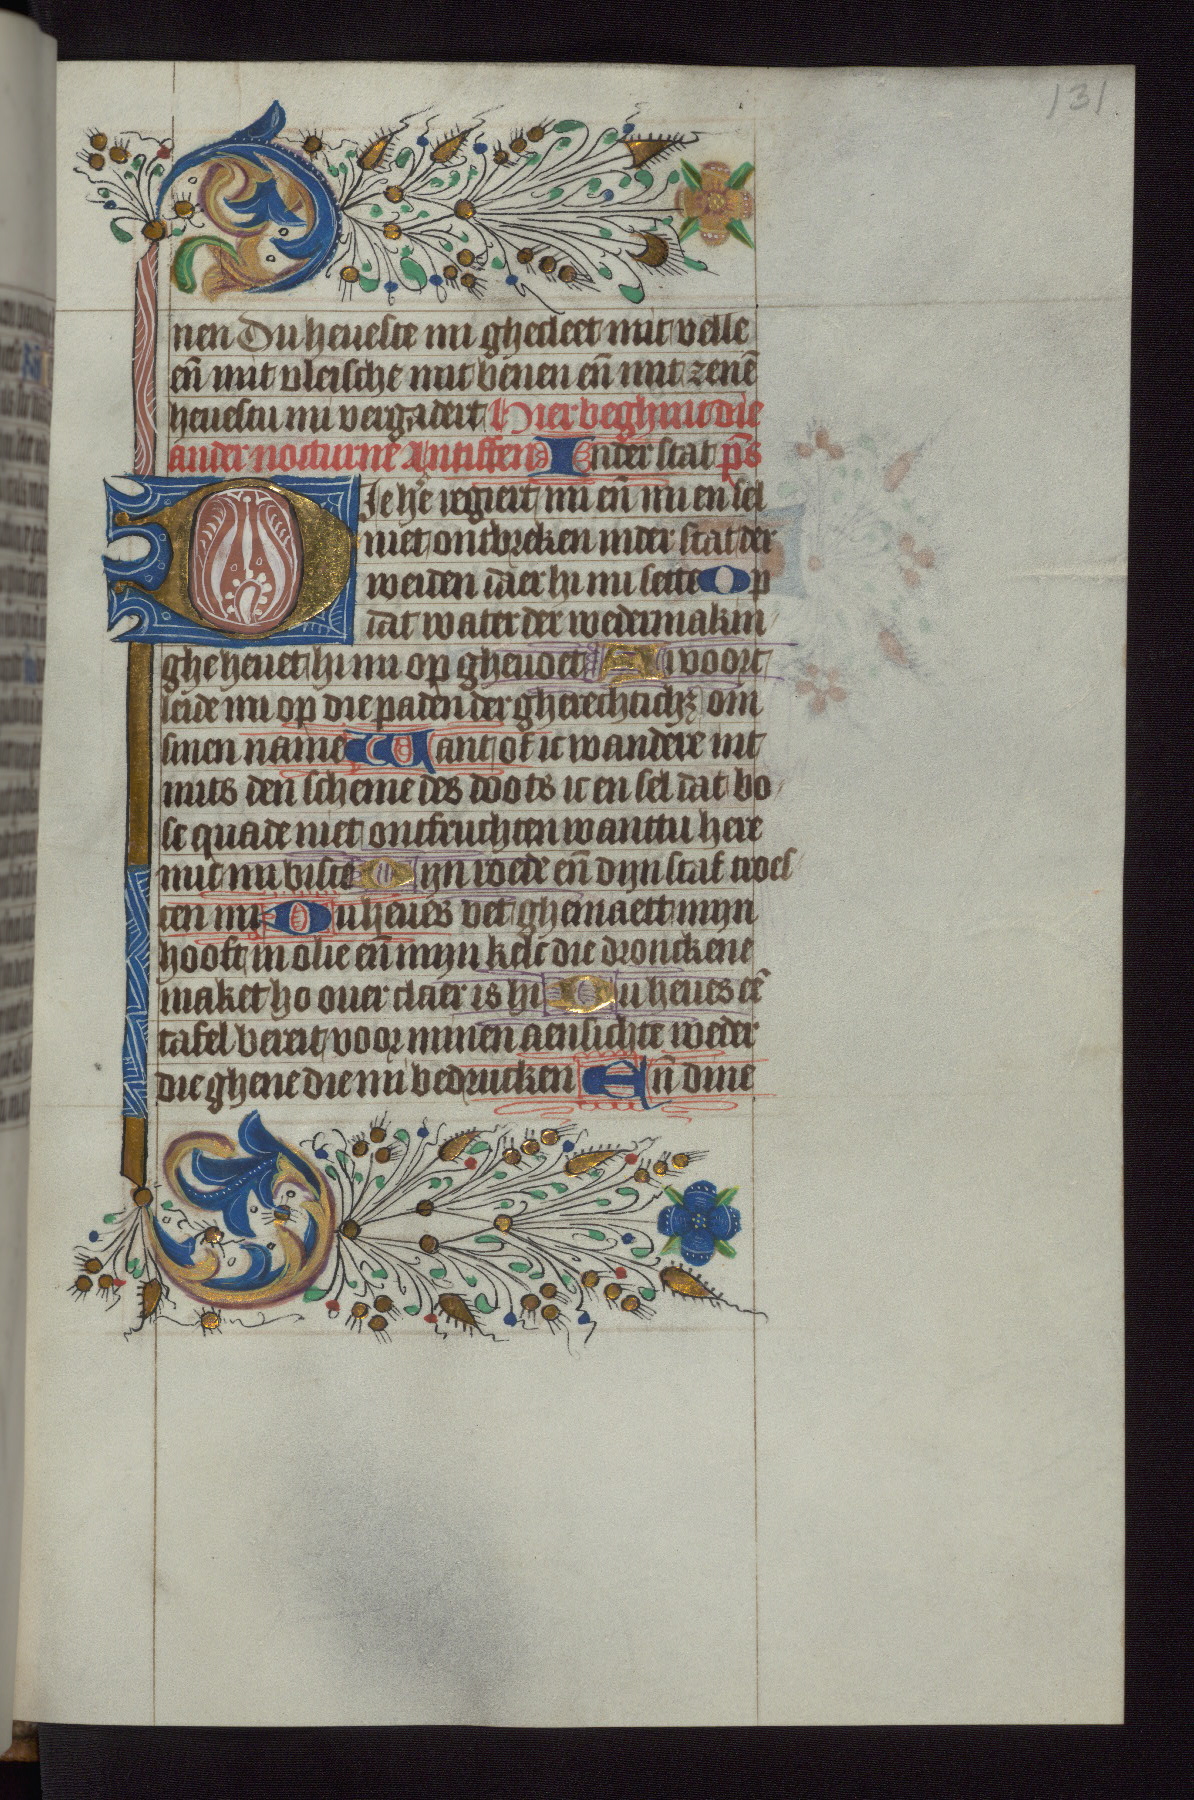 131
nen Du heueste mi ghecleet mit velle
eñ mit vleische mit benen eñ mit zenē
heuestu mi vergadert Hier beghint die
ander nocturne Antiffen Inder stat p̄s
Die he᷑ regiert mi eñ mi en sel
niet ontbreken inder stat der
weiden daer hi mi sette Op
dat water der wedermakin
ghe heuet hi mi op gheuoet Hi voort
leide mi op die paden der gherechtichꝫ om
sinen name Want of ic wandere int
mits den scheme des doots ic en sel dat bo
se quade niet ontfruchten want tu here
mit mi biste Dijn roede eñ dijn staf troes
ten mi Du heues vet ghemaect mijn
hooft in olie eñ mijn kelc die dronckene
maket ho ouer claer is hi Du heues eē
tafel bereit voor minen aensichte weder
die ghene die mi bedrucken Eñ dine